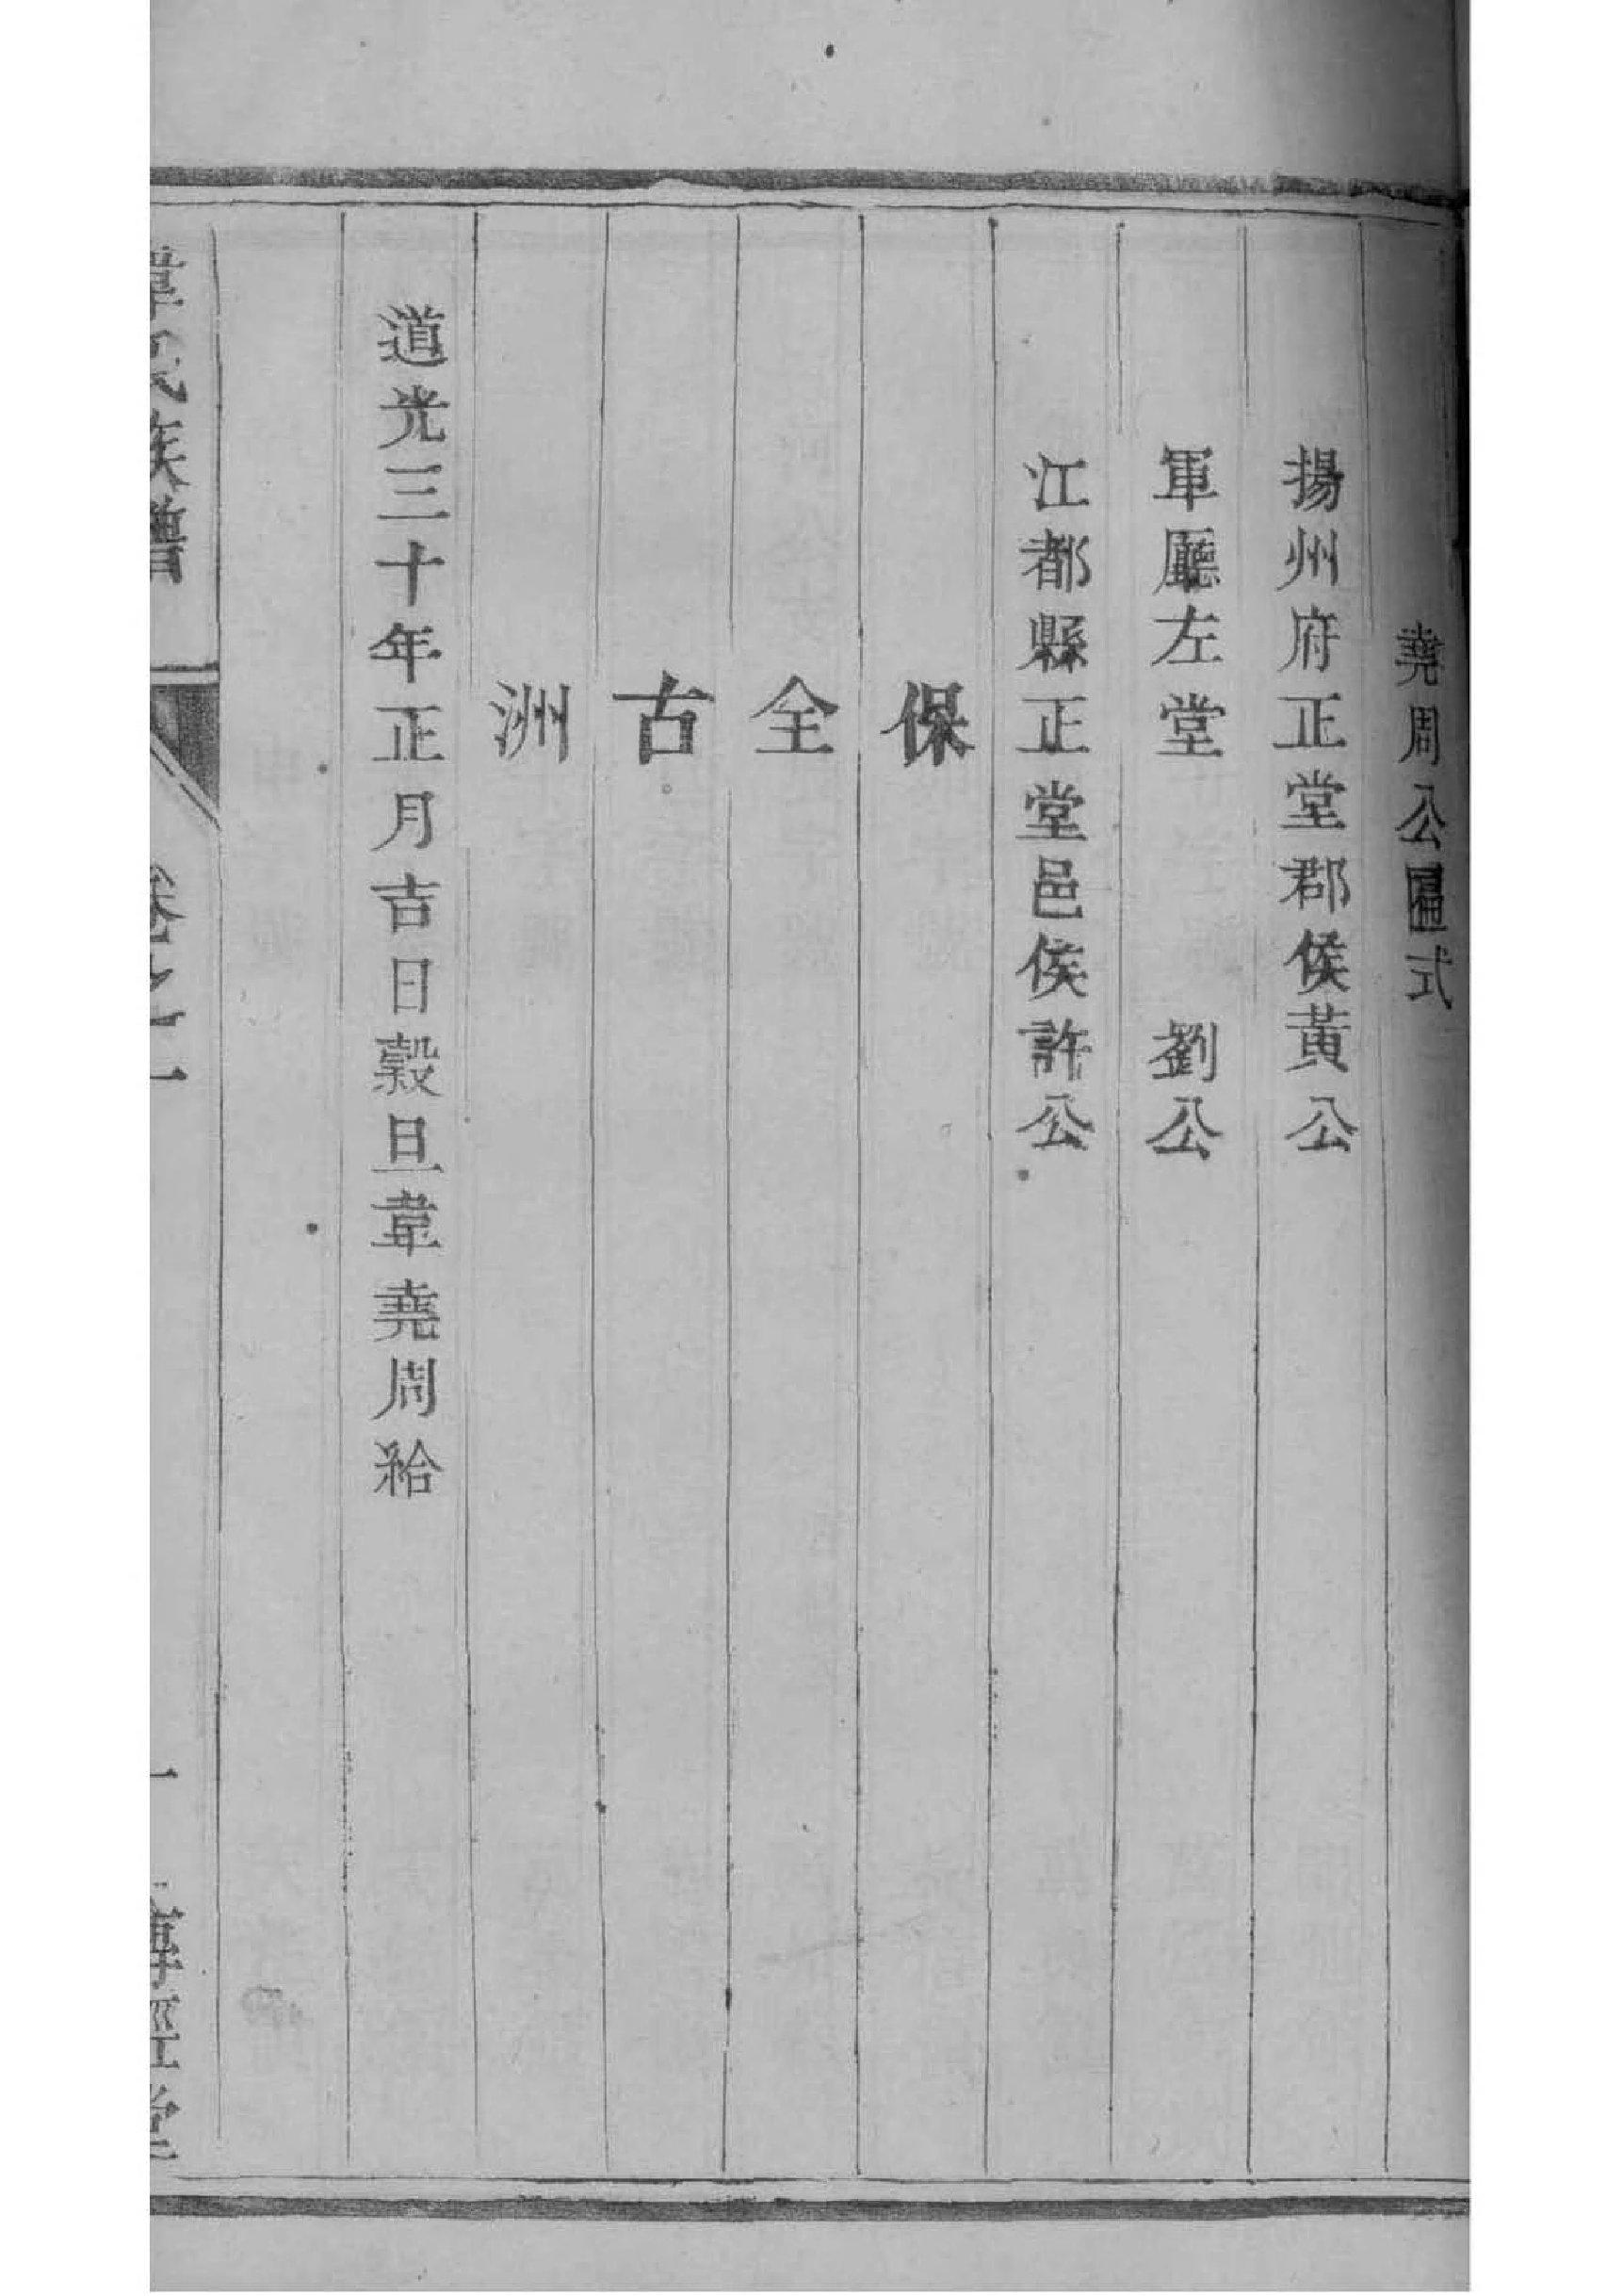 堯周公匾式
揚州府正堂郡侯黃公
軍廳左堂　劉公
江都縣正堂邑侯許公
保
全
古
洲
道光三十年正月吉日穀旦韋堯周給
韋氏族譜　卷之一　一　傳經堂